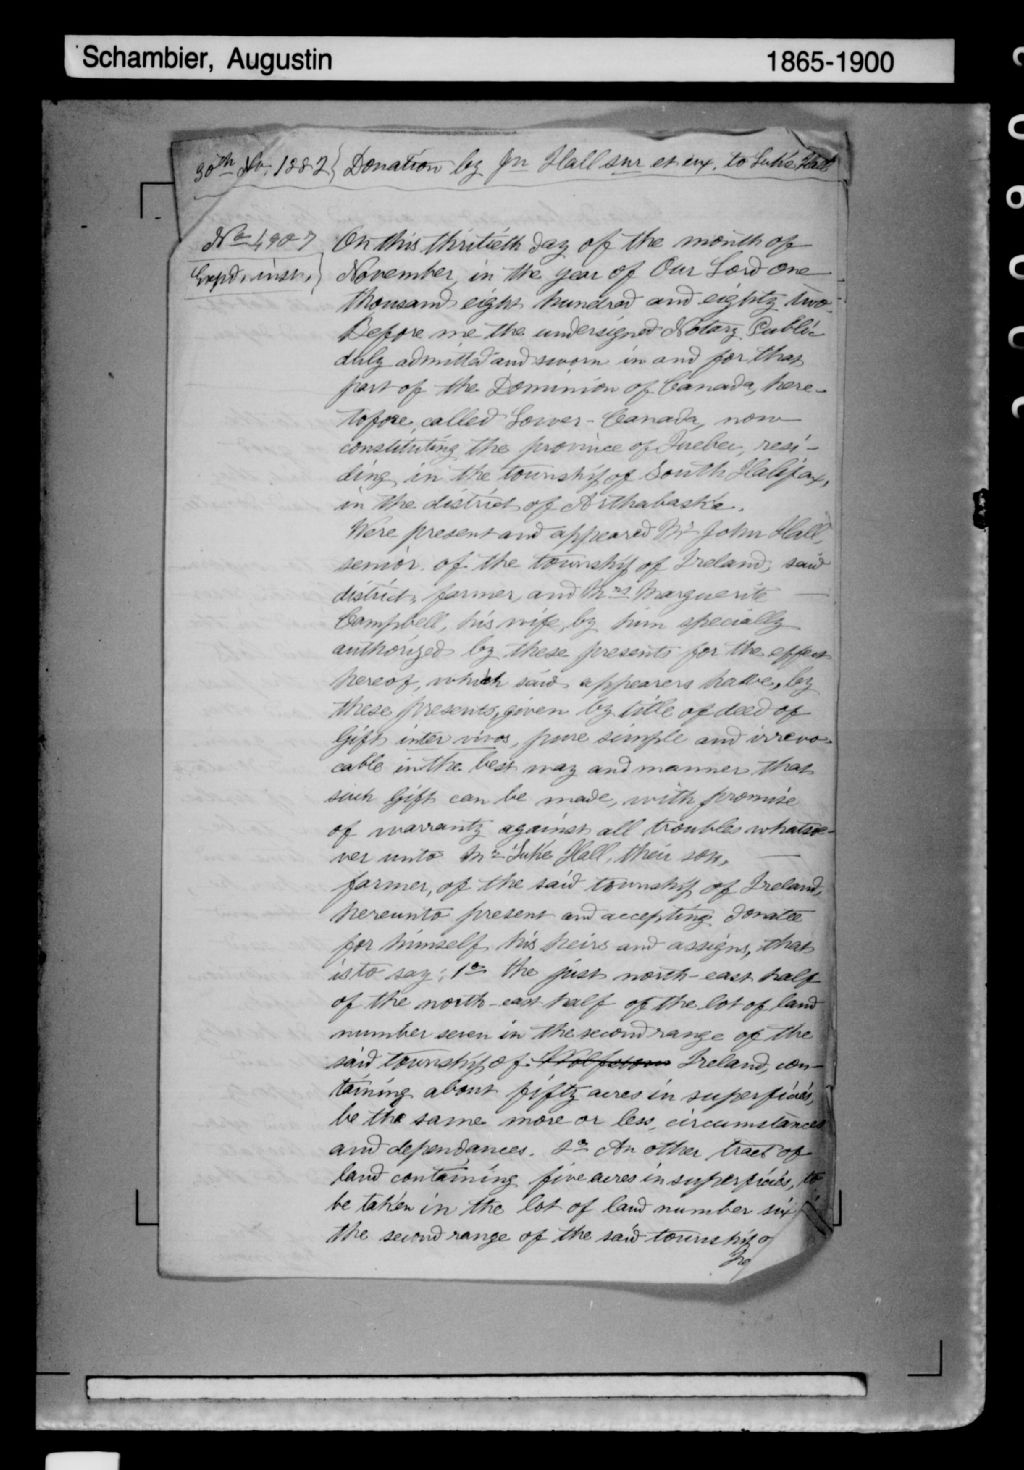 Schambier, Augustin 1865-1900
30th No. 1882 } Donation by Jn Hall snr et ux. to Luke Hall
No 4907
Expd. inst. }
On this thirtieth day of the month of
November, in the year of Our Lord one
thousand eight hundred and eighty two.
Before me the undersigned Notary Public
duly admitted and sworn in and for that
part of the Dominion of Canada, here-
tofore, called Lower-Canada, now
constituting the province of Quebec, resi-
ding in the township of South Halifax,
in the district of Arthabaska.
Were present and appeared Mr John Hall,
senior. of the township of Ireland, said
district, farmer, and Mrs Marguerite
Campbell, his wife, by him specially
authorized by these presents for the effect
hereof, which said appearers have, by
these presents, given by title of deed of
Gift inter vivos, pure simple and irrevo-
cable in the best way and manner that
such Gift can be made, with promise
of warranty against all troubles whatsoe-
ver unto Mr Luke Hall, their son,
farmer, of the said township of Ireland,
hereunto present and accepting donatee
for himself his heirs and assigns, that
is to say: 1o the just north-east half
of the north-east half of the lot of land
number seven in the second range of the
said township of Wolfstown Ireland, con-
taining about fifty acres in superficies,
be the same more or less, circumstances
and dependances. 2o An other tract of
land containing five acres in superficies, to
be taken in the lot of land number six
the second range of the said township o